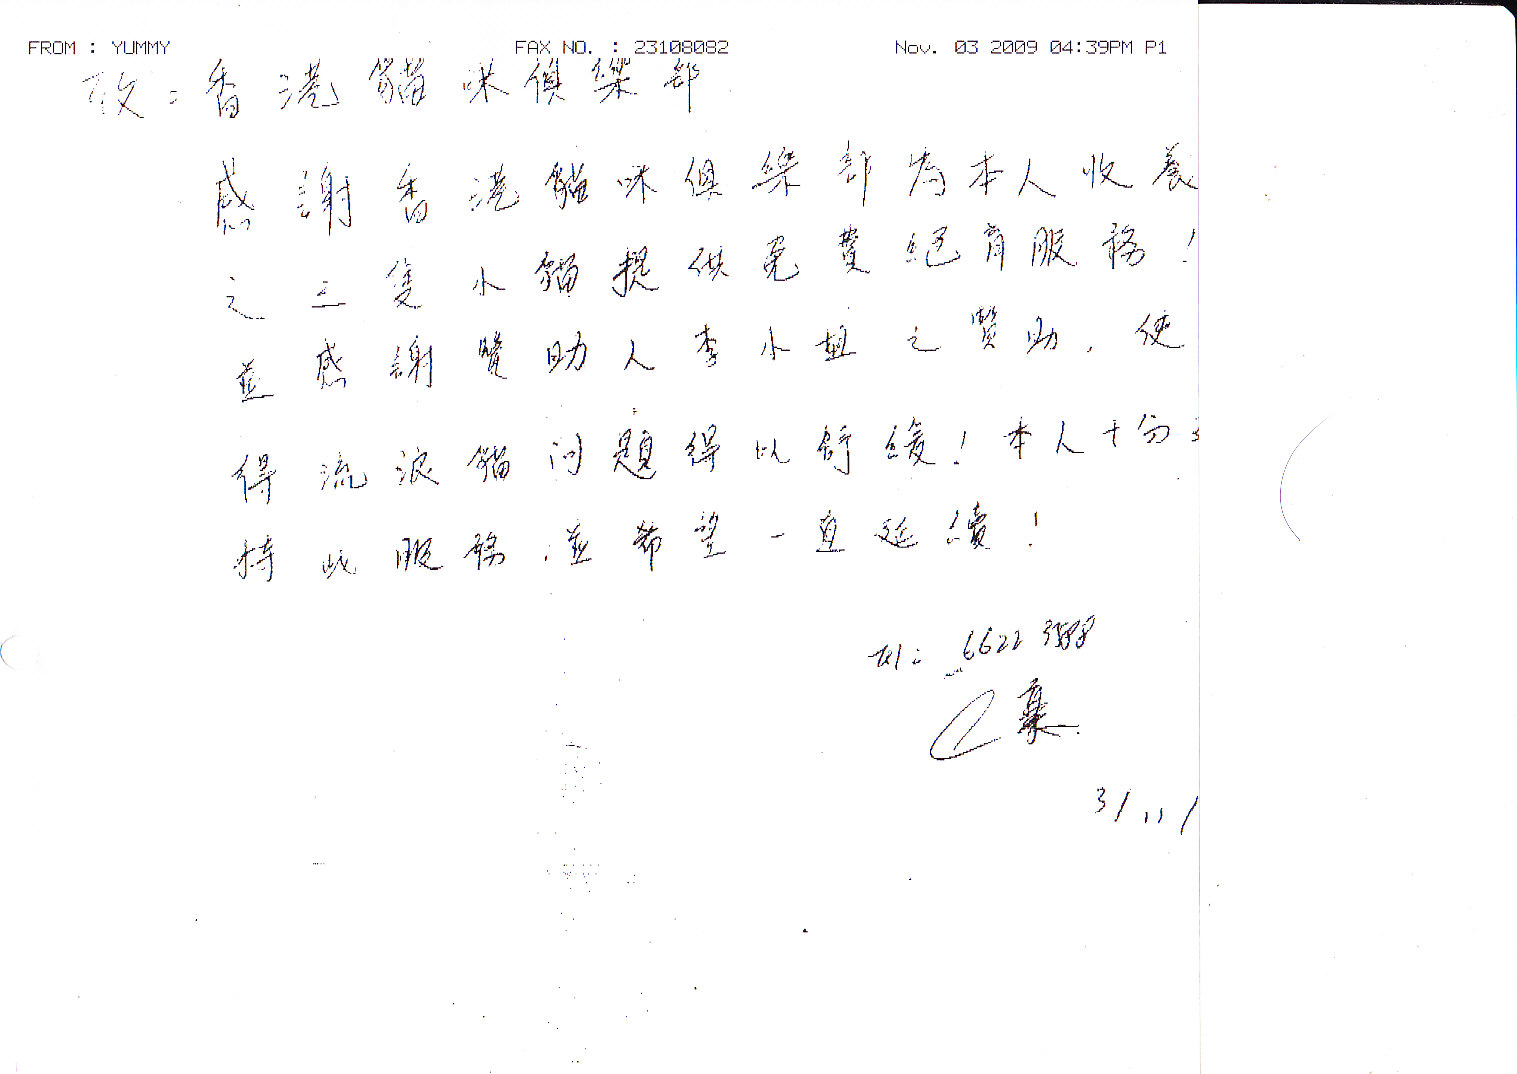 FROM : YUMMY FAX NO. : 23108082 Nov. 03 2009 04:39PM P1
致：香港貓咪俱樂部
感謝香港貓咪俱樂部為本人收養
之三隻小貓提供免費絕育服務！
並感謝贊助人李小姐之贊助，使
得流浪貓问題得以舒緩！本人十分
持此服務，並希望一直延續！
tel: 6622
3/11/